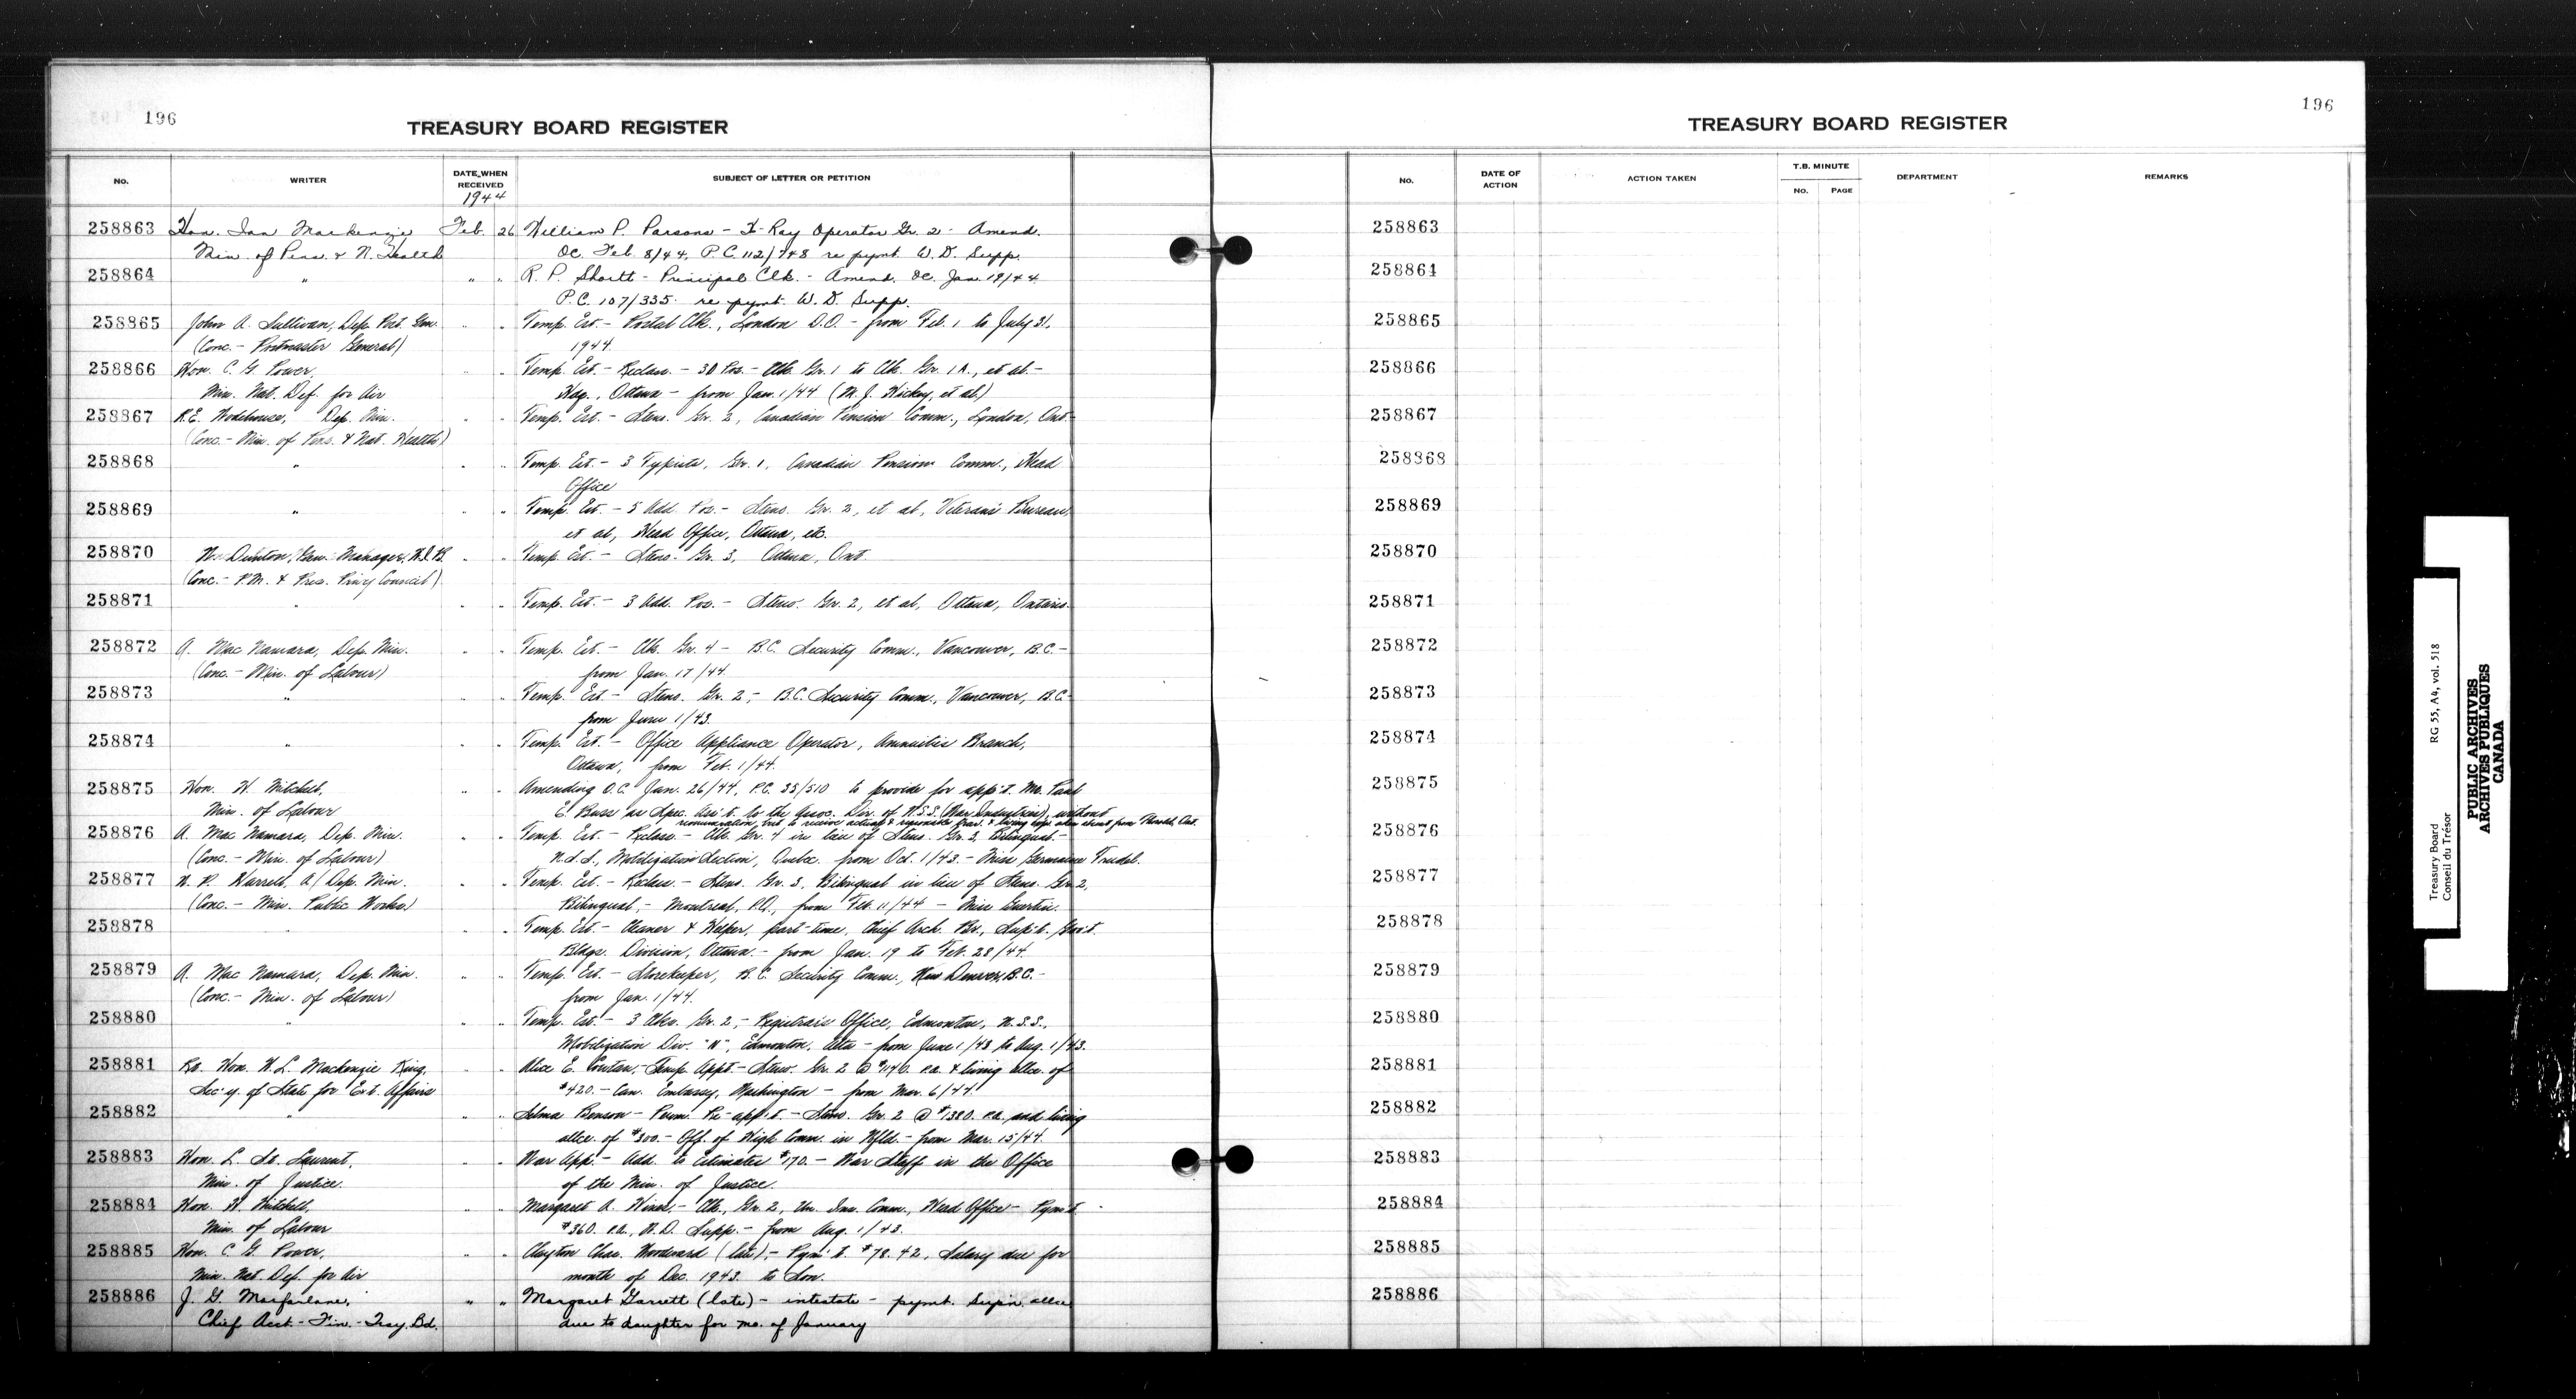 196
TREASURY BOARD REGISTER
No. WRITER DATE WHEN RECEIVED SUBJECT OF LETTER OR PETITION
1944
258863 Hon. Ian Mackenzie Feb. 26 William P. Parsons - X-Ray Operator Gr. 2 - Amend.
Min. of Pens. & N. Health OC. Feb. 8/44, P.C. 112/948 re pymt. W. D. Supp.
258864 " " " R. P. Shortt - Principal Clk. - Amend. OC. Jan. 19/44
P.C. 107/335 re pymt. W. D. Supp.
258865 John A. Sullivan, Dep. Post. Gen. " " Temp. Est. - Postal Clk., London D.O. - from Feb. 1 to July 31,
(Conc. - Postmaster General) 1944.
258866 Hon. C. G. Power, " " Temp. Est. - Reclass. - 30 Pos. - Clk. Gr. 1 to Clk. Gr. 1A., et al -
Min. Nat. Def. for Air Hdq., Ottawa - from Jan. 1/44 (M. J. Hickey, et al)
258867 R.E. Wodehouse, Dep. Min. " " Temp. Est. - Steno. Gr. 2, Canadian Pension Comm., London, Ont.
(Conc. - Min. of Pens. & Nat. Health)
258868 " " " Temp. Est. - 3 Typists, Gr. 1, Canadian Pension Comm., Head
Office
258869 " " " Temp. Est. - 5 Add. Pos. - Steno. Gr. 2, et al, Veterans Bureau,
et al, Head Office, Ottawa, etc.
258870 Dunton, Gen. Manager, W.I.B. " " Temp. Est. - Steno. Gr. 3, Ottawa, Ont.
(Conc. - P.M. & Pres. Privy Council)
258871 " " " Temp. Est. - 3 Add. Pos. - Steno. Gr. 2, et al, Ottawa, Ontario.
258872 A. MacNamara, Dep. Min. " " Temp. Est. - Clk. Gr. 4 - B.C. Security Comm., Vancouver, B.C. -
(Conc. - Min. of Labour) from Jan. 17/44.
258873 " " " Temp. Est. - Steno. Gr. 2, - B.C. Security Comm., Vancouver, B.C.
from June 1/43.
258874 " " " Temp. Est. - Office Appliance Operator, Annuities Branch,
Ottawa, from Feb. 1/44.
258875 Hon. H. Mitchell, " " Amending O.C. Jan. 26/44, P.C. 35/510 to provide for app't. Mr. Paul
Min. of Labour E. Buss as Spec. Ass't. to the Assoc. Dir. of N.S.S. (War Industries), without
remuneration but to receive actual & reasonable trav. & living exps. when absent from Thorold, Ont.
258876 A. MacNamara, Dep. Min. " " Temp. Est. - Reclass. - Clk. Gr. 4 in lieu of Steno. Gr. 3, Bilingual -
(Conc. - Min. of Labour) N.S.S., Mobilization Section, Quebec. from Oct. 1/43. - Miss Germaine Trudel.
258877 Dep. Min. " " Temp. Est. - Reclass. - Steno. Gr. 3, Bilingual in lieu of Steno. Gr. 2,
(Conc. - Min. Public Works) Bilingual, - Montreal, P.Q., from Feb. 11/44 - Miss Guertin.
258878 " " " Temp. Est. - Cleaner & Helper, part-time, Chief Arch. Br., Sup't. Gov't.
Bldgs. Division, Ottawa - from Jan. 19 to Feb. 28/44.
258879 A. MacNamara, Dep. Min. " " Temp. Est. - Storekeeper, B.C. Security Comm., New Denver, B.C. -
(Conc. - Min. of Labour) from Jan. 1/44.
258880 " " " Temp. Est. - 3 Clks. Gr. 2, - Registrar's Office, Edmonton, N.S.S.,
Mobilization Div. "N", Edmonton, Alta - from June 1/43 to Aug. 1/43.
258881 Rt. Hon. W.L. Mackenzie King, " " Alice E. - Temp. Appt. - Steno. Gr. 2 @ $1140. p.a. & living allce. of
Sec'y. of State for Ext. Affairs $420. - Can. Embassy, Washington - from Mar. 6/44.
258882 " " " Selma Benson - Perm. Re-app't. - Steno. Gr. 2 @ $1380. p.a. and living
allce. of $300. - Off. of High Comm. in Nfld. - from Mar. 15/44.
258883 Hon. L. St. Laurent, " " War App. - Add. to Estimates $170. - War Staff in the Office
Min. of Justice. of the Min. of Justice.
258884 Hon. H. Mitchell, " " Margaret A. - Clk., Gr. 2, Un. Ins. Comm., Head Office - Pym't.
Min. of Labour $360. p.a., W.D. Supp. - from Aug. 1/43.
258885 Hon. C. G. Power, " " Clayton Chas. Woodward (late), - Pym't. $78.42, Salary due for
Min. Nat. Def. for Air month of Dec. 1943 to Son.
258886 J. G. Macfarlane, " " Margaret Garrett (late) - intestate - pymt. Supn. allce
Chief Acct. - Fin. - Treas. Bd. due to daughter for mo. of January
196
TREASURY BOARD REGISTER
No. DATE OF ACTION ACTION TAKEN T.B. MINUTE NO. PAGE DEPARTMENT REMARKS
258863
258864
258865
258866
258867
258868
258869
258870
258871
258872
258873
258874
258875
258876
258877
258878
258879
258880
258881
258882
258883
258884
258885
258886
Treasury Board RG 55, A4, vol. 518
Conseil du Trésor
PUBLIC ARCHIVES
ARCHIVES PUBLIQUES
CANADA